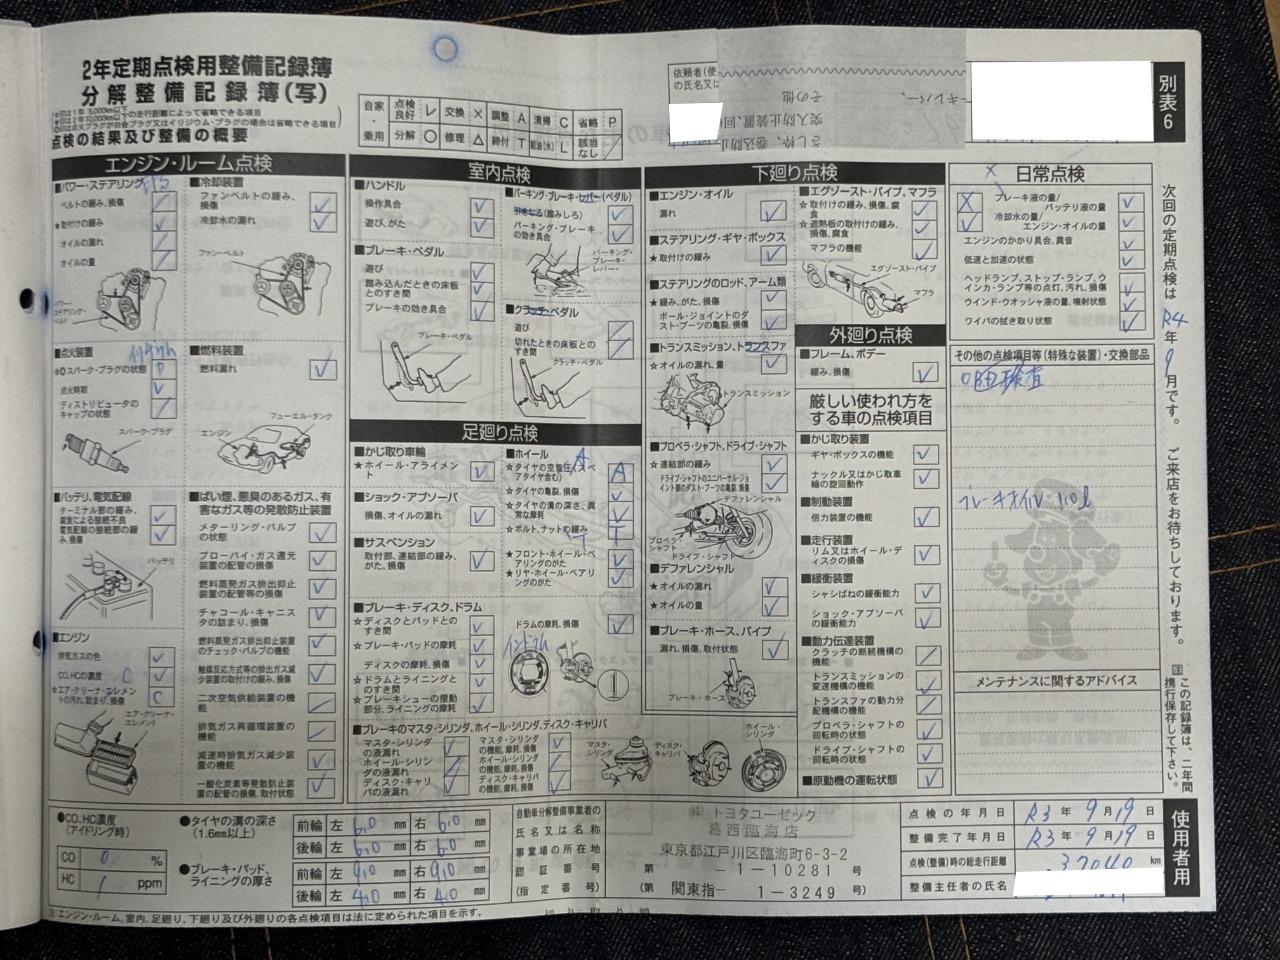 2年定期点検用整備記録簿
分解整備記録簿(写)
点検の結果及び整備の概要
自家・乗用
点検良好 レ 交換 × 調整 A 清掃 C 省略 P
分解 ○ 修理 △ 締付 T 給油(水) L 該当なし /
依頼者(使
の氏名又は
別表6
エンジン・ルーム点検
■パワー・ステアリング
ベルトの緩み、損傷
★取付けの緩み
オイルの漏れ
オイルの量
パワー・ステアリング・ベルト
■冷却装置
ファンベルトの緩み、損傷
冷却水の漏れ
ファン・ベルト
■点火装置
☆◎スパーク・プラグの状態 P
点火時期
ディストリビュータのキャップの状態
スパーク・プラグ
■燃料装置
燃料漏れ
フューエル・タンク
エンジン
■バッテリ、電気配線
ターミナル部の緩み、腐食による接続不良
電気配線の接続部の緩み、損傷
バッテリ
■エンジン
排気ガスの色
CO、HCの濃度
★エア・クリーナ・エレメントの汚れ、詰まり、損傷 C
エア・クリーナ・エレメント
■ばい煙、悪臭のあるガス、有害なガス等の発散防止装置
メターリング・バルブの状態
ブローバイ・ガス還元装置の配管の損傷
燃料蒸発ガス排出抑止装置の配管等の損傷
チャコール・キャニスタの詰まり、損傷
燃料蒸発ガス排出抑止装置のチェック・バルブの機能
触媒反応方式等の排出ガス減少装置の取付けの緩み、損傷
二次空気供給装置の機能
排気ガス再循環装置の機能
減速時排気ガス減少装置の機能
一酸化炭素等発散防止装置の配管の損傷、取付状態
室内点検
■ハンドル
操作具合
遊び、がた
■ブレーキ・ペダル
遊び
踏み込んだときの床板とのすき間
ブレーキの効き具合
ブレーキ・ペダル
■パーキング・ブレーキ・レバー(ペダル)
引きしろ(踏みしろ)
パーキング・ブレーキの効き具合
パーキング・ブレーキ・レバー・
■クラッチ・ペダル
遊び
切れたときの床板とのすき間
クラッチ・ペダル
足廻り点検
■かじ取り車輪
★ホイール・アライメント
■ショック・アブソーバ
損傷、オイルの漏れ
■サスペンション
取付部、連結部の緩み、がた、損傷
■ホイール
☆タイヤの空気圧(スペアタイヤ含む) A
☆タイヤの亀裂、損傷
☆タイヤの溝の深さ、異常な摩耗
☆ボルト、ナットの緩み T
★フロント・ホイール・ベアリングのがた
★リヤ・ホイール・ベアリングのがた
■ブレーキ・ディスク、ドラム
☆ディスクとパッドとのすき間
☆ブレーキ・パッドの摩耗
ディスクの摩耗、損傷
☆ドラムとライニングとのすき間
☆ブレーキシューの摺動部分、ライニングの摩耗
ドラムの摩耗、損傷
■ブレーキのマスタ・シリンダ、ホイール・シリンダ、ディスク・キャリパ
マスタ・シリンダの液漏れ
ホイール・シリンダの液漏れ
ディスク・キャリパの液漏れ
マスタ・シリンダの機能、摩耗、損傷
ホイール・シリンダの機能、摩耗、損傷
ディスク・キャリパの機能、摩耗、損傷
マスタ・シリンダ
ディスク・キャリパ
ホイール・シリンダ
下廻り点検
■エンジン・オイル
漏れ
■ステアリング・ギヤ・ボックス
★取付けの緩み
■ステアリングのロッド、アーム類
★緩み、がた、損傷
ボール・ジョイントのダスト・ブーツの亀裂、損傷
■トランスミッション、トランスファ
☆オイルの漏れ、量
トランスミッション
■プロペラ・シャフト、ドライブ・シャフト
☆連結部の緩み
ドライブ・シャフトのユニバーサル・ジョイント部のダスト・ブーツの亀裂、損傷
デファレンシャル
プロペラ・シャフト
ドライブ・シャフト
■デファレンシャル
★オイルの漏れ
★オイルの量
■ブレーキ・ホース、パイプ
漏れ、損傷、取付状態
ブレーキ・ホース
■エグゾースト・パイプ、マフラ
☆取付けの緩み、損傷、腐食
☆遮熱板の取付けの緩み、損傷、腐食
マフラの機能
エグゾースト・パイプ
マフラ
外廻り点検
■フレーム、ボデー
緩み、損傷
厳しい使われ方をする車の点検項目
■かじ取り装置
ギヤ・ボックスの機能
ナックル又はかじ取車輪の旋回動作
■制動装置
倍力装置の機能
■走行装置
リム又はホイール・ディスクの損傷
■緩衝装置
シャシばねの緩衝能力
ショック・アブソーバの緩衝能力
■動力伝達装置
クラッチの断続機構の機能
トランスミッションの変速機構の機能
トランスファの動力分配機構の機能
プロペラ・シャフトの回転時の状態
ドライブ・シャフトの回転時の状態
■原動機の運転状態
日常点検
ブレーキ液の量/バッテリ液の量
冷却水の量/エンジン・オイルの量
エンジンのかかり具合、異音
低速と加速の状態
ヘッドランプ、ストップ・ランプ、ウインカ・ランプ等の点灯、汚れ、損傷
ウインド・ウォッシャ液の量、噴射状態
ワイパの拭き取り状態
その他の点検項目等(特殊な装置)・交換部品
ブレーキオイル 1.0ℓ
メンテナンスに関するアドバイス
次回の定期点検は R4 年 9 月です。 ご来店をお待ちしております。
注 この記録簿は、二年間携行保存して下さい。
使用者用
●CO、HC濃度(アイドリング時)
CO 0 %
HC 1 ppm
●タイヤの溝の深さ(1.6mm以上)
前輪 左 6.0 mm 右 6.0 mm
後輪 左 6.0 mm 右 6.0 mm
●ブレーキ・パッド、ライニングの厚さ
前輪 左 9.0 mm 右 9.0 mm
後輪 左 4.0 mm 右 4.0 mm
自動車分解整備事業者の氏名又は名称
事業場の所在地
認証番号
(指定番号)
(株)トヨタユーゼック
葛西臨海店
東京都江戸川区臨海町6-3-2
第 -1-10281 号
(第 関東指- 1-3249 号)
点検の年月日 R3 年 9 月 19 日
整備完了年月日 R3 年 9 月 19 日
点検(整備)時の総走行距離 37040 km
整備主任者の氏名
注 エンジン・ルーム、室内、足廻り、下廻り及び外廻りの各点検項目は法に定められた項目を示す。